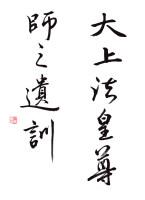 大上法皇尊
師之遺訓